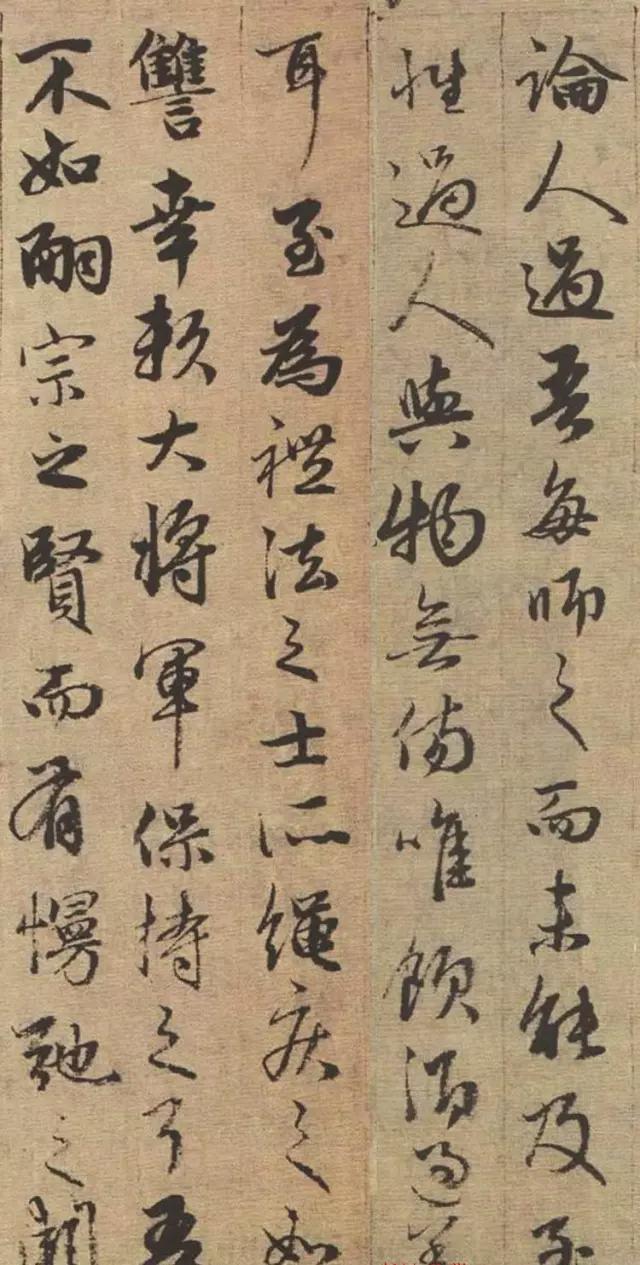 論人過吾每師之而未能及至
性過人與物無傷唯飲酒過差
耳至為禮法之士所繩疾之如
讐幸賴大將軍保持之耳吾
不如嗣宗之賢而有慢弛之闕